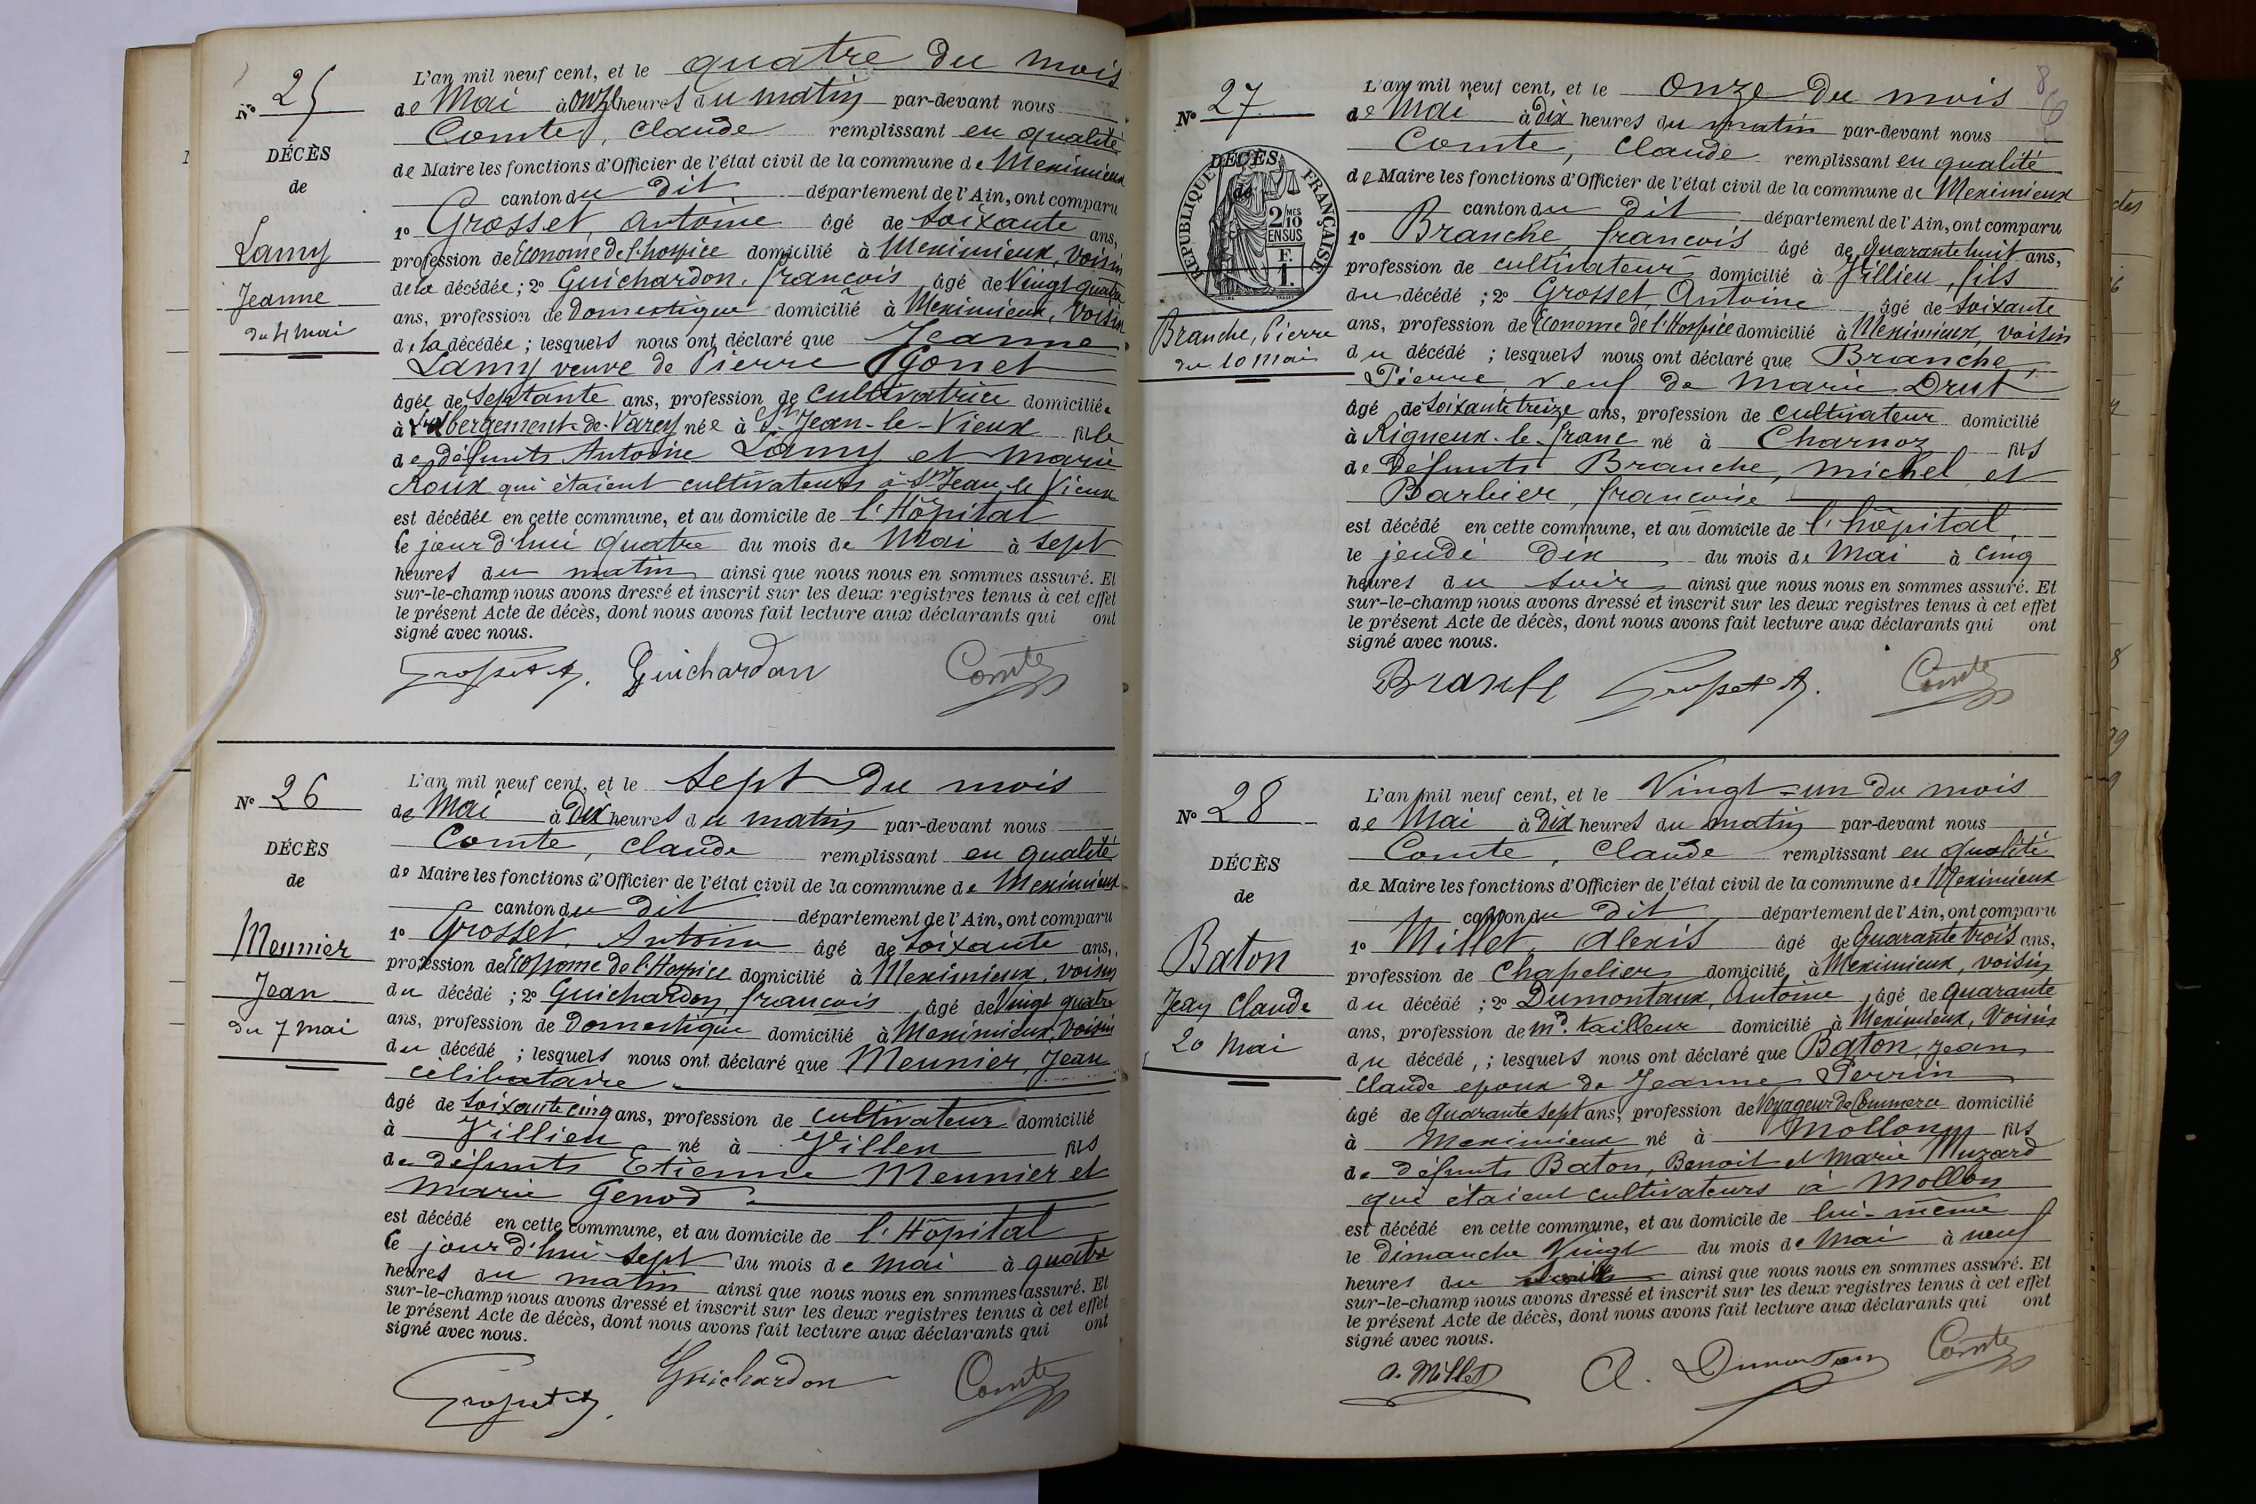 N° 25
DÉCÈS
de
Lamy
Jeanne
du 4 mai
L'an mil neuf cent, et le quatre du mois
de Mai à onze heures du matin par-devant nous
Comte, Claude remplissant en qualité
de Maire les fonctions d'Officier de l'état civil de la commune de Meximieux
canton du dit département de l'Ain, ont comparu
1° Grosset, Antoine âgé de soixante ans,
profession de Econome de l'hospice domicilié à Meximieux, voisin
de la décédée ; 2° Guichardon, françois âgé de Vingt quatre
ans, profession de Domestique domicilié à Meximieux, Voisin
de la décédée ; lesquels nous ont déclaré que Jeanne
Lamy veuve de Pierre Gonet
âgée de septante ans, profession de cultivatrice domiciliée
à L'abergement-de-Varey née à St Jean-le-Vieux fille
de défunts Antoine Lamy et Marie
Roux qui étaient cultivateurs à St Jean le Vieux
est décédée en cette commune, et au domicile de l'Hôpital
le jour d'hui quatre du mois de Mai à sept
heures du matin ainsi que nous nous en sommes assuré. Et
sur-le-champ nous avons dressé et inscrit sur les deux registres tenus à cet effet
le présent Acte de décès, dont nous avons fait lecture aux déclarants qui ont
signé avec nous.
Grosset A. Guichardon Comte
N° 26
DÉCÈS
de
Meunier
Jean
du 7 mai
L'an mil neuf cent, et le sept du mois
de Mai à Dix heures du matin par-devant nous
Comte, Claude remplissant en qualité
de Maire les fonctions d'Officier de l'état civil de la commune de Meximieux
canton du dit département de l'Ain, ont comparu
1° Grosset, Antoine âgé de soixante ans,
profession de Econome de l'Hospice domicilié à Meximieux, voisin
du décédé ; 2° Guichardon, françois âgé de Vingt quatre
ans, profession de Domestique domicilié à Meximieux, Voisin
du décédé ; lesquels nous ont déclaré que Meunier, Jean
célibataire
âgé de soixante cinq ans, profession de cultivateur domicilié
à Villieu né à Villieu fils
de défunts Etienne Meunier et
Marie Genod
est décédé en cette commune, et au domicile de l'Hôpital
le jour d'hui sept du mois de Mai à quatre
heures du matin ainsi que nous nous en sommes assuré. Et
sur-le-champ nous avons dressé et inscrit sur les deux registres tenus à cet effet
le présent Acte de décès, dont nous avons fait lecture aux déclarants qui ont
signé avec nous.
Grosset A. Guichardon Comte
N° 27
DÉCÈS
de
RÉPUBLIQUE FRANÇAISE
2/10 MES
EN SUS
F.
1.
Branche, Pierre
du 10 mai
8
L'an mil neuf cent, et le onze du mois
de Mai à dix heures du matin par-devant nous
Comte, Claude remplissant en qualité
de Maire les fonctions d'Officier de l'état civil de la commune de Meximieux
canton du dit département de l'Ain, ont comparu
1° Branche, françois âgé de quarante huit ans,
profession de cultivateur domicilié à Villieu, fils
du décédé ; 2° Grosset, Antoine âgé de soixante
ans, profession de Econome de l'Hospice domicilié à Meximieux, voisin
du décédé ; lesquels nous ont déclaré que Branche,
Pierre, veuf de Marie Drut
âgé de soixante treize ans, profession de cultivateur domicilié
à Rigneux-le-franc né à Charnoz fils
de Défunts Branche, Michel et
Barbier, francoise
est décédé en cette commune, et au domicile de l'hôpital,
le jeudi dix du mois de Mai à cinq
heures du soir ainsi que nous nous en sommes assuré. Et
sur-le-champ nous avons dressé et inscrit sur les deux registres tenus à cet effet
le présent Acte de décès, dont nous avons fait lecture aux déclarants qui ont
signé avec nous.
Branche Grosset A. Comte
N° 28
DÉCÈS
de
Baton
Jean Claude
20 Mai
L'an mil neuf cent, et le Vingt-un du mois
de Mai à Dix heures du matin par-devant nous
Comte, Claude remplissant en qualité
de Maire les fonctions d'Officier de l'état civil de la commune de Meximieux
canton du dit département de l'Ain, ont comparu
1° Millet, Alexis âgé de Quarante trois ans,
profession de Chapelier domicilié à Meximieux, voisin
du décédé ; 2° Dumontaux, Antoine âgé de quarante
ans, profession de md. tailleur domicilié à Meximieux, Voisin
du décédé, ; lesquels nous ont déclaré que Baton, Jean
Claude epoux de Jeanne Perrin
âgé de quarante sept ans, profession de Voyageur de Commerce domicilié
à Meximieux né à Mollon fils
de défunts Baton, Benoit et Marie Muzard
qui étaient cultivateurs à Mollon
est décédé en cette commune, et au domicile de lui-même
le dimanche Vingt du mois de Mai à neuf
heures du soir ainsi que nous nous en sommes assuré. Et
sur-le-champ nous avons dressé et inscrit sur les deux registres tenus à cet effet
le présent Acte de décès, dont nous avons fait lecture aux déclarants qui ont
signé avec nous.
A. Millet A. Dumontaux Comte